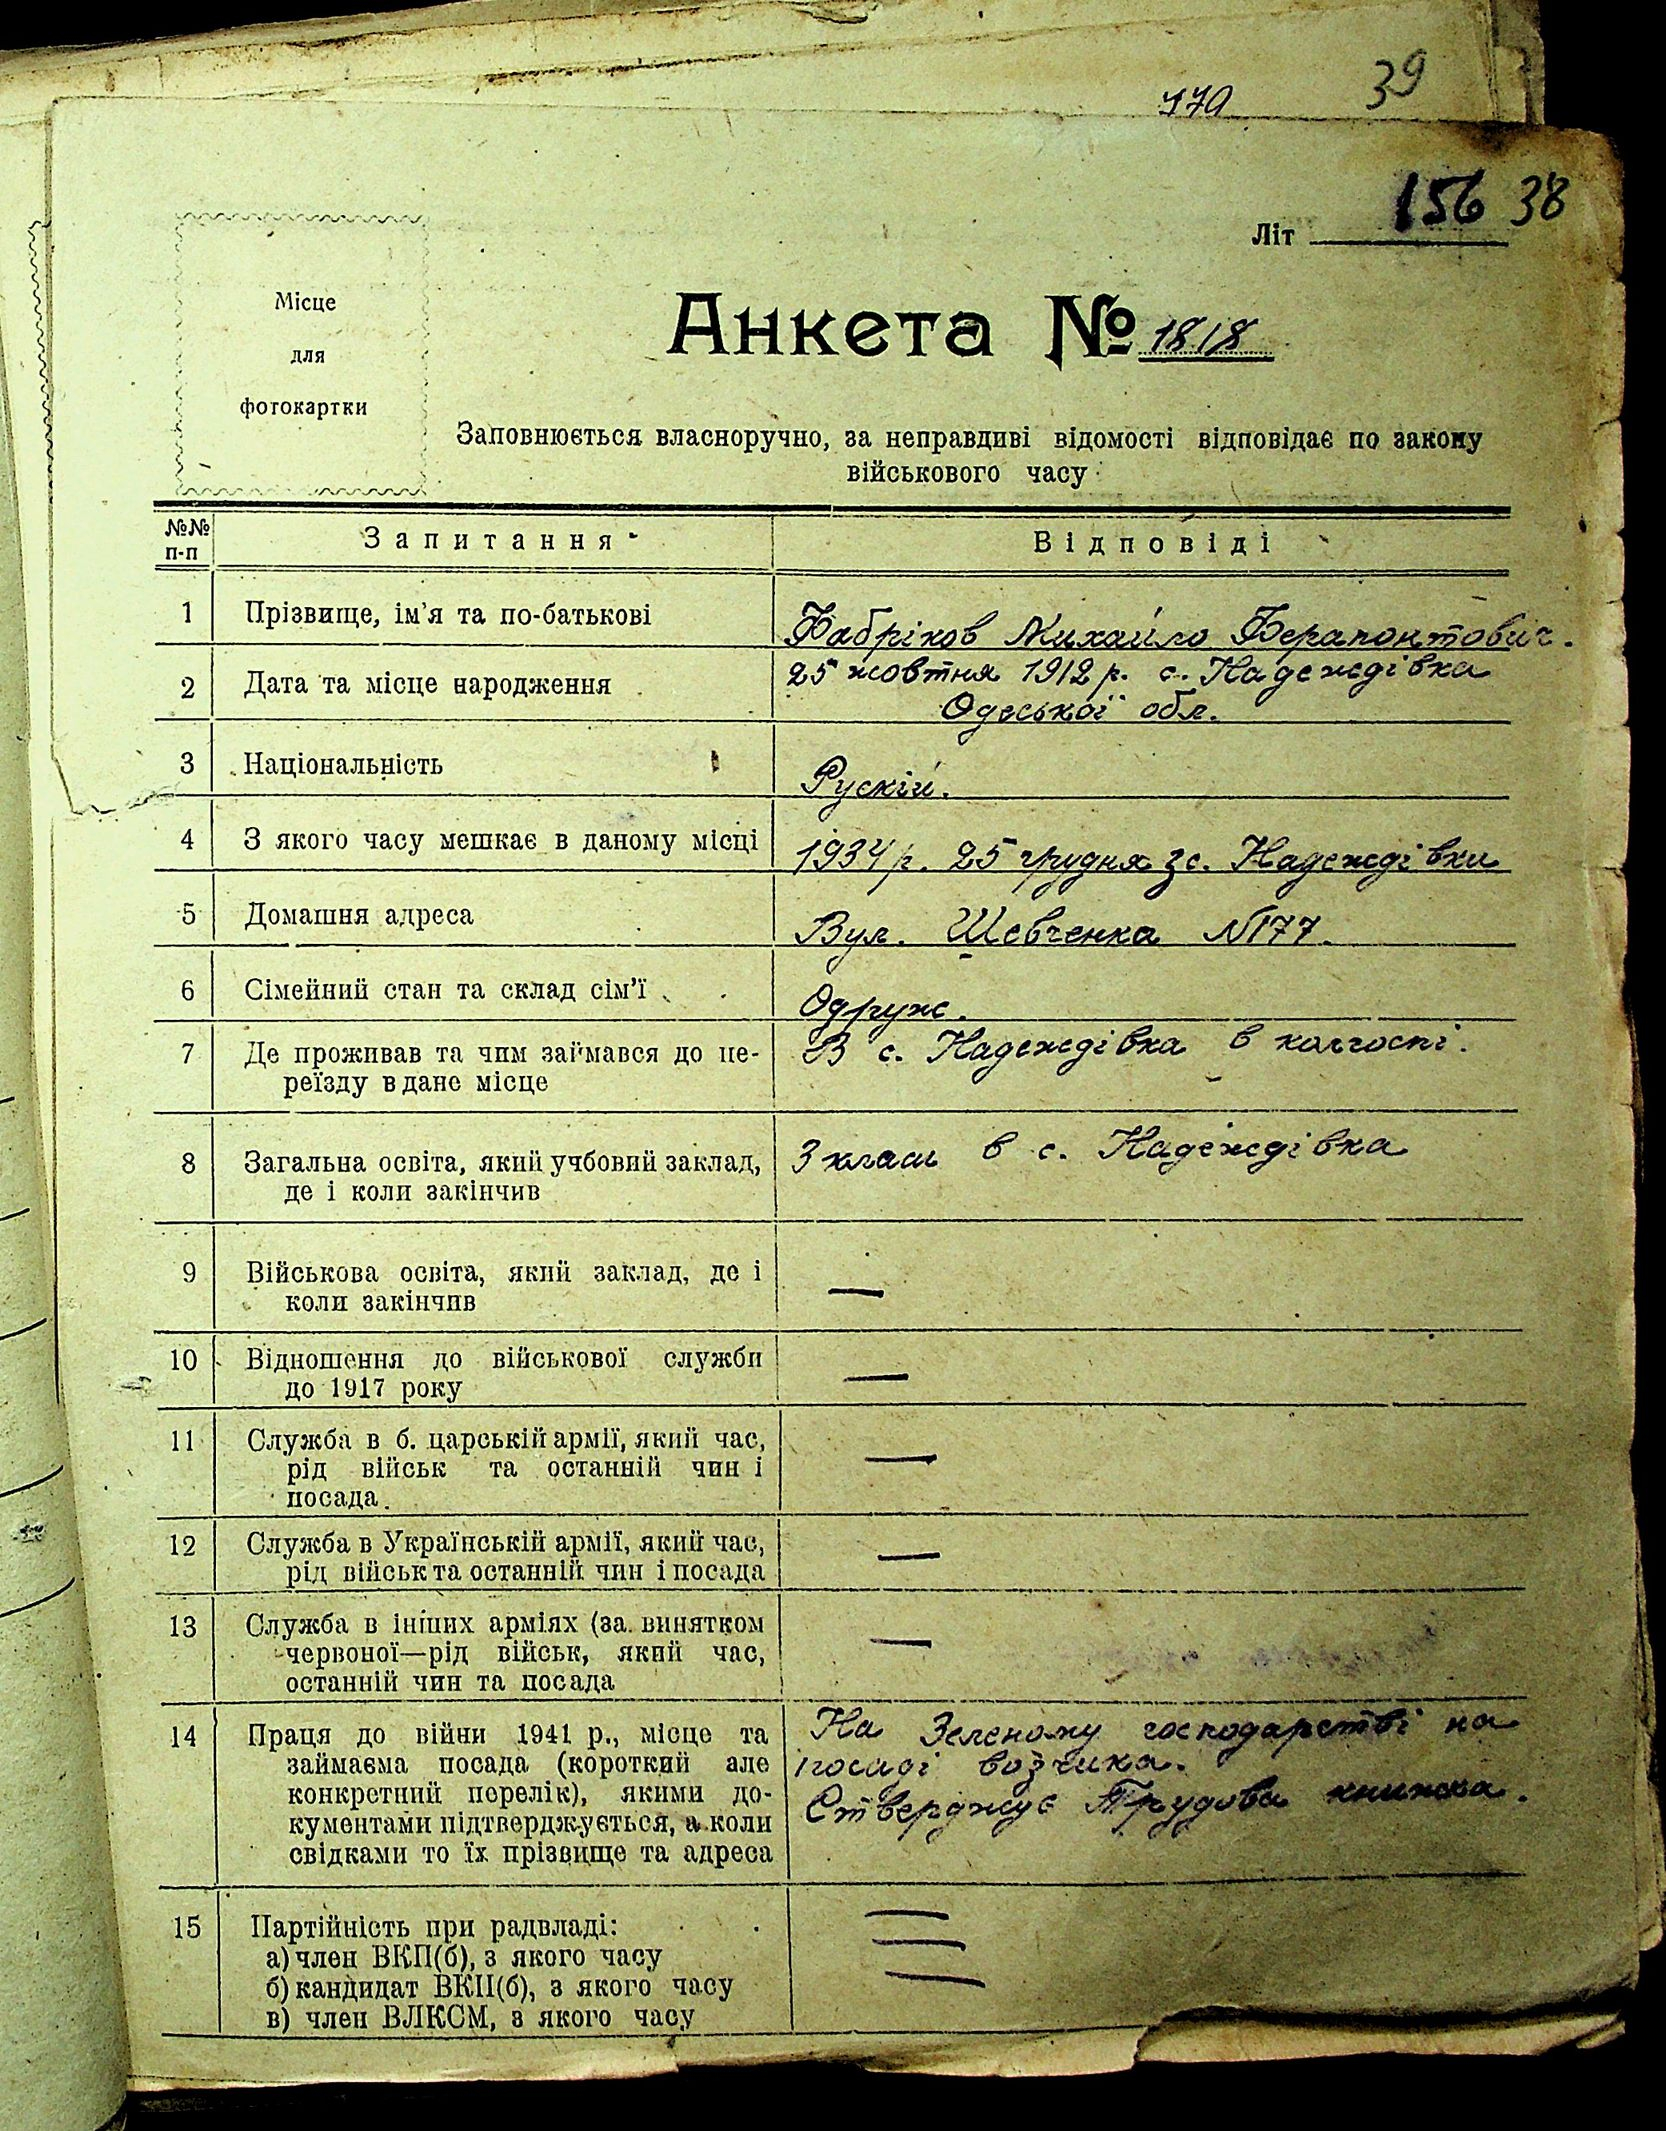 39
779
156 38
Літ
Місце
для
фотокартки
Анкета № 1818
Заповнюється власноручно, за неправдиві відомості відповідає по закону
військового часу
№№ п-п
Запитання
Відповіді
1 Прізвище, ім'я та по-батькові
Фабріков Михайло Ферапонтович.
2 Дата та місце народження
25 жовтня 1912 р. с. Надеждівка
Одеської обл.
3 Національність
Рускій.
4 З якого часу мешкає в даному місці
1934 р. 25 грудня з с. Надеждівки
5 Домашня адреса
Вул. Шевченка №177.
6 Сімейний стан та склад сім'ї
Одруж.
7 Де проживав та чим займався до пе-
реїзду в дане місце
В с. Надеждівка в колгоспі.
8 Загальна освіта, який учбовий заклад,
де і коли закінчив
3 класи в с. Надеждівка
9 Військова освіта, який заклад, де і
коли закінчив
—
10 Відношення до військової служби
до 1917 року
—
11 Служба в б. царській армії, який час,
рід військ та останній чин і
посада.
—
12 Служба в Українській армії, який час,
рід військ та останній чин і посада
—
13 Служба в інших арміях (за винятком
червоної—рід військ, який час,
останній чин та посада
—
14 Праця до війни 1941 р., місце та
займаєма посада (короткий але
конкретний перелік), якими до-
кументами підтверджується, а коли
свідками то їх прізвище та адреса
На Зеленому господарстві на
посаді возчика.
Стверджує Трудова книжка.
15 Партійність при радвладі:
а) член ВКП(б), з якого часу
б) кандидат ВКП(б), з якого часу
в) член ВЛКСМ, з якого часу
—
—
—